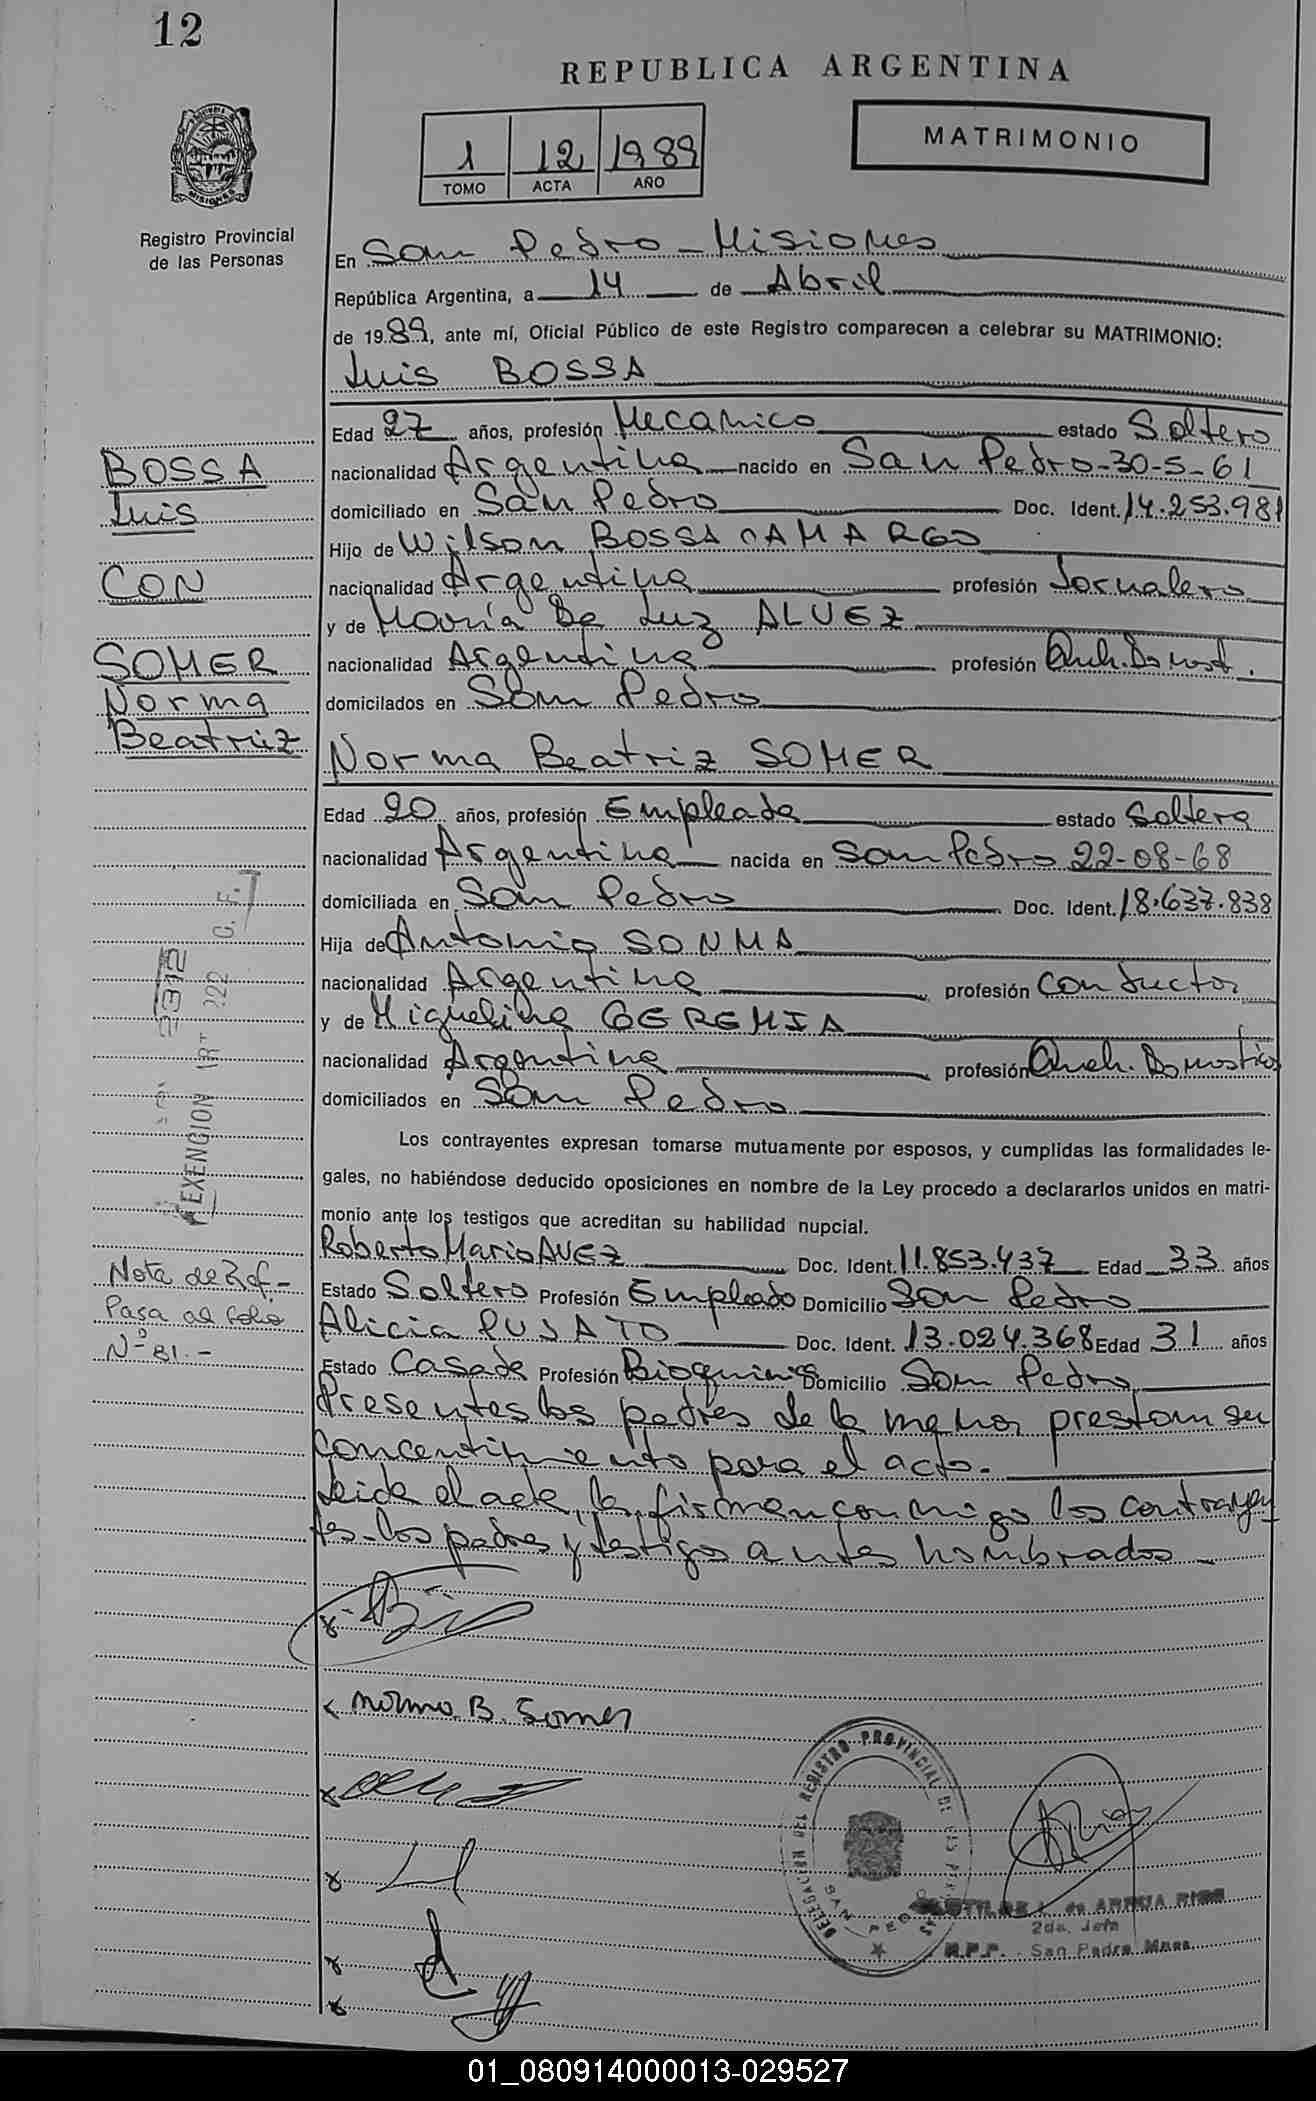 12
REPUBLICA ARGENTINA
MATRIMONIO
1 12 1989
TOMO ACTA AÑO
MISIONES
Registro Provincial
de las Personas
En San Pedro - Misiones
República Argentina, a 14 de Abril
de 1989, ante mí, Oficial Público de este Registro comparecen a celebrar su MATRIMONIO:
Luis BOSSA
Edad 27 años, profesión Mecanico estado Soltero
nacionalidad Argentina nacido en San Pedro-30-5-61
domiciliado en San Pedro Doc. Ident. 14.253.981
Hijo de Wilson BOSSA CAMARGO
nacionalidad Argentina profesión Jornalero
y de María De Luz ALVEZ
nacionalidad Argentina profesión Queh. Domest.
domicilados en San Pedro
BOSSA
Luis
CON
SOMER
Norma
Beatriz
Norma Beatriz SOMER
Edad 20 años, profesión Empleada estado Soltera
nacionalidad Argentina nacida en San Pedro 22-08-68
domiciliada en San Pedro Doc. Ident. 18.637.838
Hija de Antonio SONMA
nacionalidad Argentina profesión Conductor
y de Miguelina GEREMIA
nacionalidad Argentina profesión Queh. Domesticos
domiciliados en San Pedro
EXENCION ART 222 C. F.
2312
Los contrayentes expresan tomarse mutuamente por esposos, y cumplidas las formalidades le-
gales, no habiéndose deducido oposiciones en nombre de la Ley procedo a declararlos unidos en matri-
monio ante los testigos que acreditan su habilidad nupcial.
Roberto Mario ALVEZ Doc. Ident. 11.853.437 Edad 33 años
Estado Soltero Profesión Empleado Domicilio San Pedro
Alicia PUJATO Doc. Ident. 13.024.368 Edad 31 años
Estado Casada Profesión Bioquimica Domicilio San Pedro
Nota de Ref-
Pasa al folio
Nº 81.-
Presentes los padres de la menor prestan su
concentimiento para el acto.
Leida el acta, la firman conmigo los contrayen
tes-los padres y testigo antes nombrados -
Norma B. Somer
DELEGACION DEL REGISTRO PROVINCIAL DE LAS PERSONAS
SAN PEDRO
de ARRUA RIOS
2da. Jefa
R.P.P. - San Pedro Mnes.
01_080914000013-029527